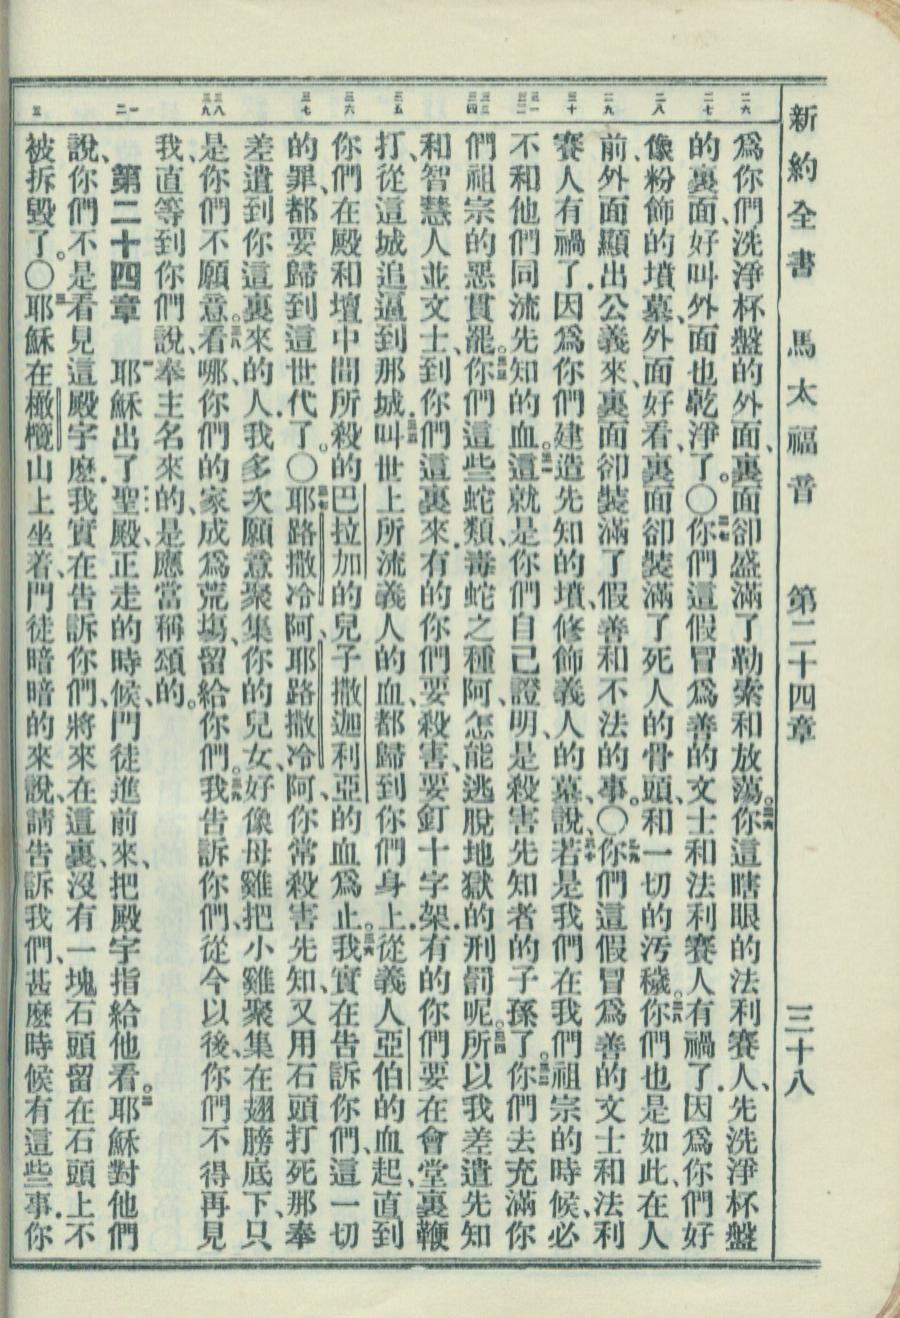 新約全書 馬太福音 第二十四章 三十八
二六 二七 二八 二九 三十 三一 三二 三三 三四 三五 三六 三七 三八 三九 一 二 三
爲你們洗淨杯盤的外面、裏面卻盛滿了勒索和放蕩。二六你這瞎眼的法利賽人、先洗淨杯盤
的裏面、好叫外面也乾淨了。〇二七你們這假冒爲善的文士和法利賽人有禍了．因爲你們好
像粉飾的墳墓、外面好看、裏面卻裝滿了死人的骨頭、和一切的汚穢。二八你們也是如此在人
前、外面顯出公義來、裏面卻裝滿了假善和不法的事。〇二九你們這假冒爲善的文士和法利
賽人有禍了．因爲你們建造先知的墳、修飾義人的墓、說、三十若是我們在我們祖宗的時候、必
不和他們同流先知的血。三一這就是你們自己證明、是殺害先知者的子孫了。三二你們去充滿你
們祖宗的惡貫罷。三三你們這些蛇類．毒蛇之種阿、怎能逃脫地獄的刑罰呢。三四所以我差遣先知
和智慧人並文士、到你們這裏來．有的你們要殺害、要釘十字架．有的你們要在會堂裏鞭
打、從這城追逼到那城．三五叫世上所流義人的血都歸到你們身上．從義人亞伯的血起、直到
你們在殿和壇中間所殺的巴拉加的兒子撒迦利亞的血爲止。三六我實在告訴你們、這一切
的罪、都要歸到這世代了。〇三七耶路撒冷阿、耶路撒冷阿、你常殺害先知、又用石頭打死那奉
差遣到你這裏來的人．我多次願意聚集你的兒女、好像母雞把小雞聚集在翅膀底下、只
是你們不願意。三八看哪、你們的家成爲荒塲、留給你們。三九我告訴你們、從今以後、你們不得再見
我、直等到你們說、奉主名來的、是應當稱頌的。
第二十四章 一耶穌出了聖殿、正走的時候、門徒進前來、把殿宇指給他看。二耶穌對他們
說、你們不是看見這殿宇麽．我實在告訴你們、將來在這裏、沒有一塊石頭留在石頭上不
被拆毀了。〇三耶穌在橄欖山上坐着、門徒暗暗的來說、請告訴我們、甚麽時候有這些事．你